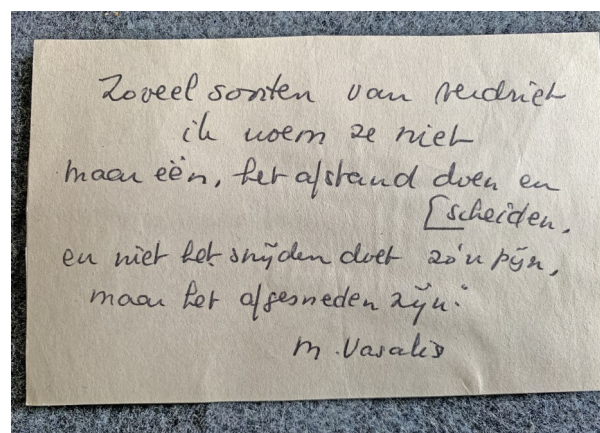 Zoveel soorten van verdriet
ik noem ze niet
maar eën, het afstand doen en
[scheiden.
en niet het snijden doet zo'n pijn,
maar het afgesneden zijn.
M. Vasalis